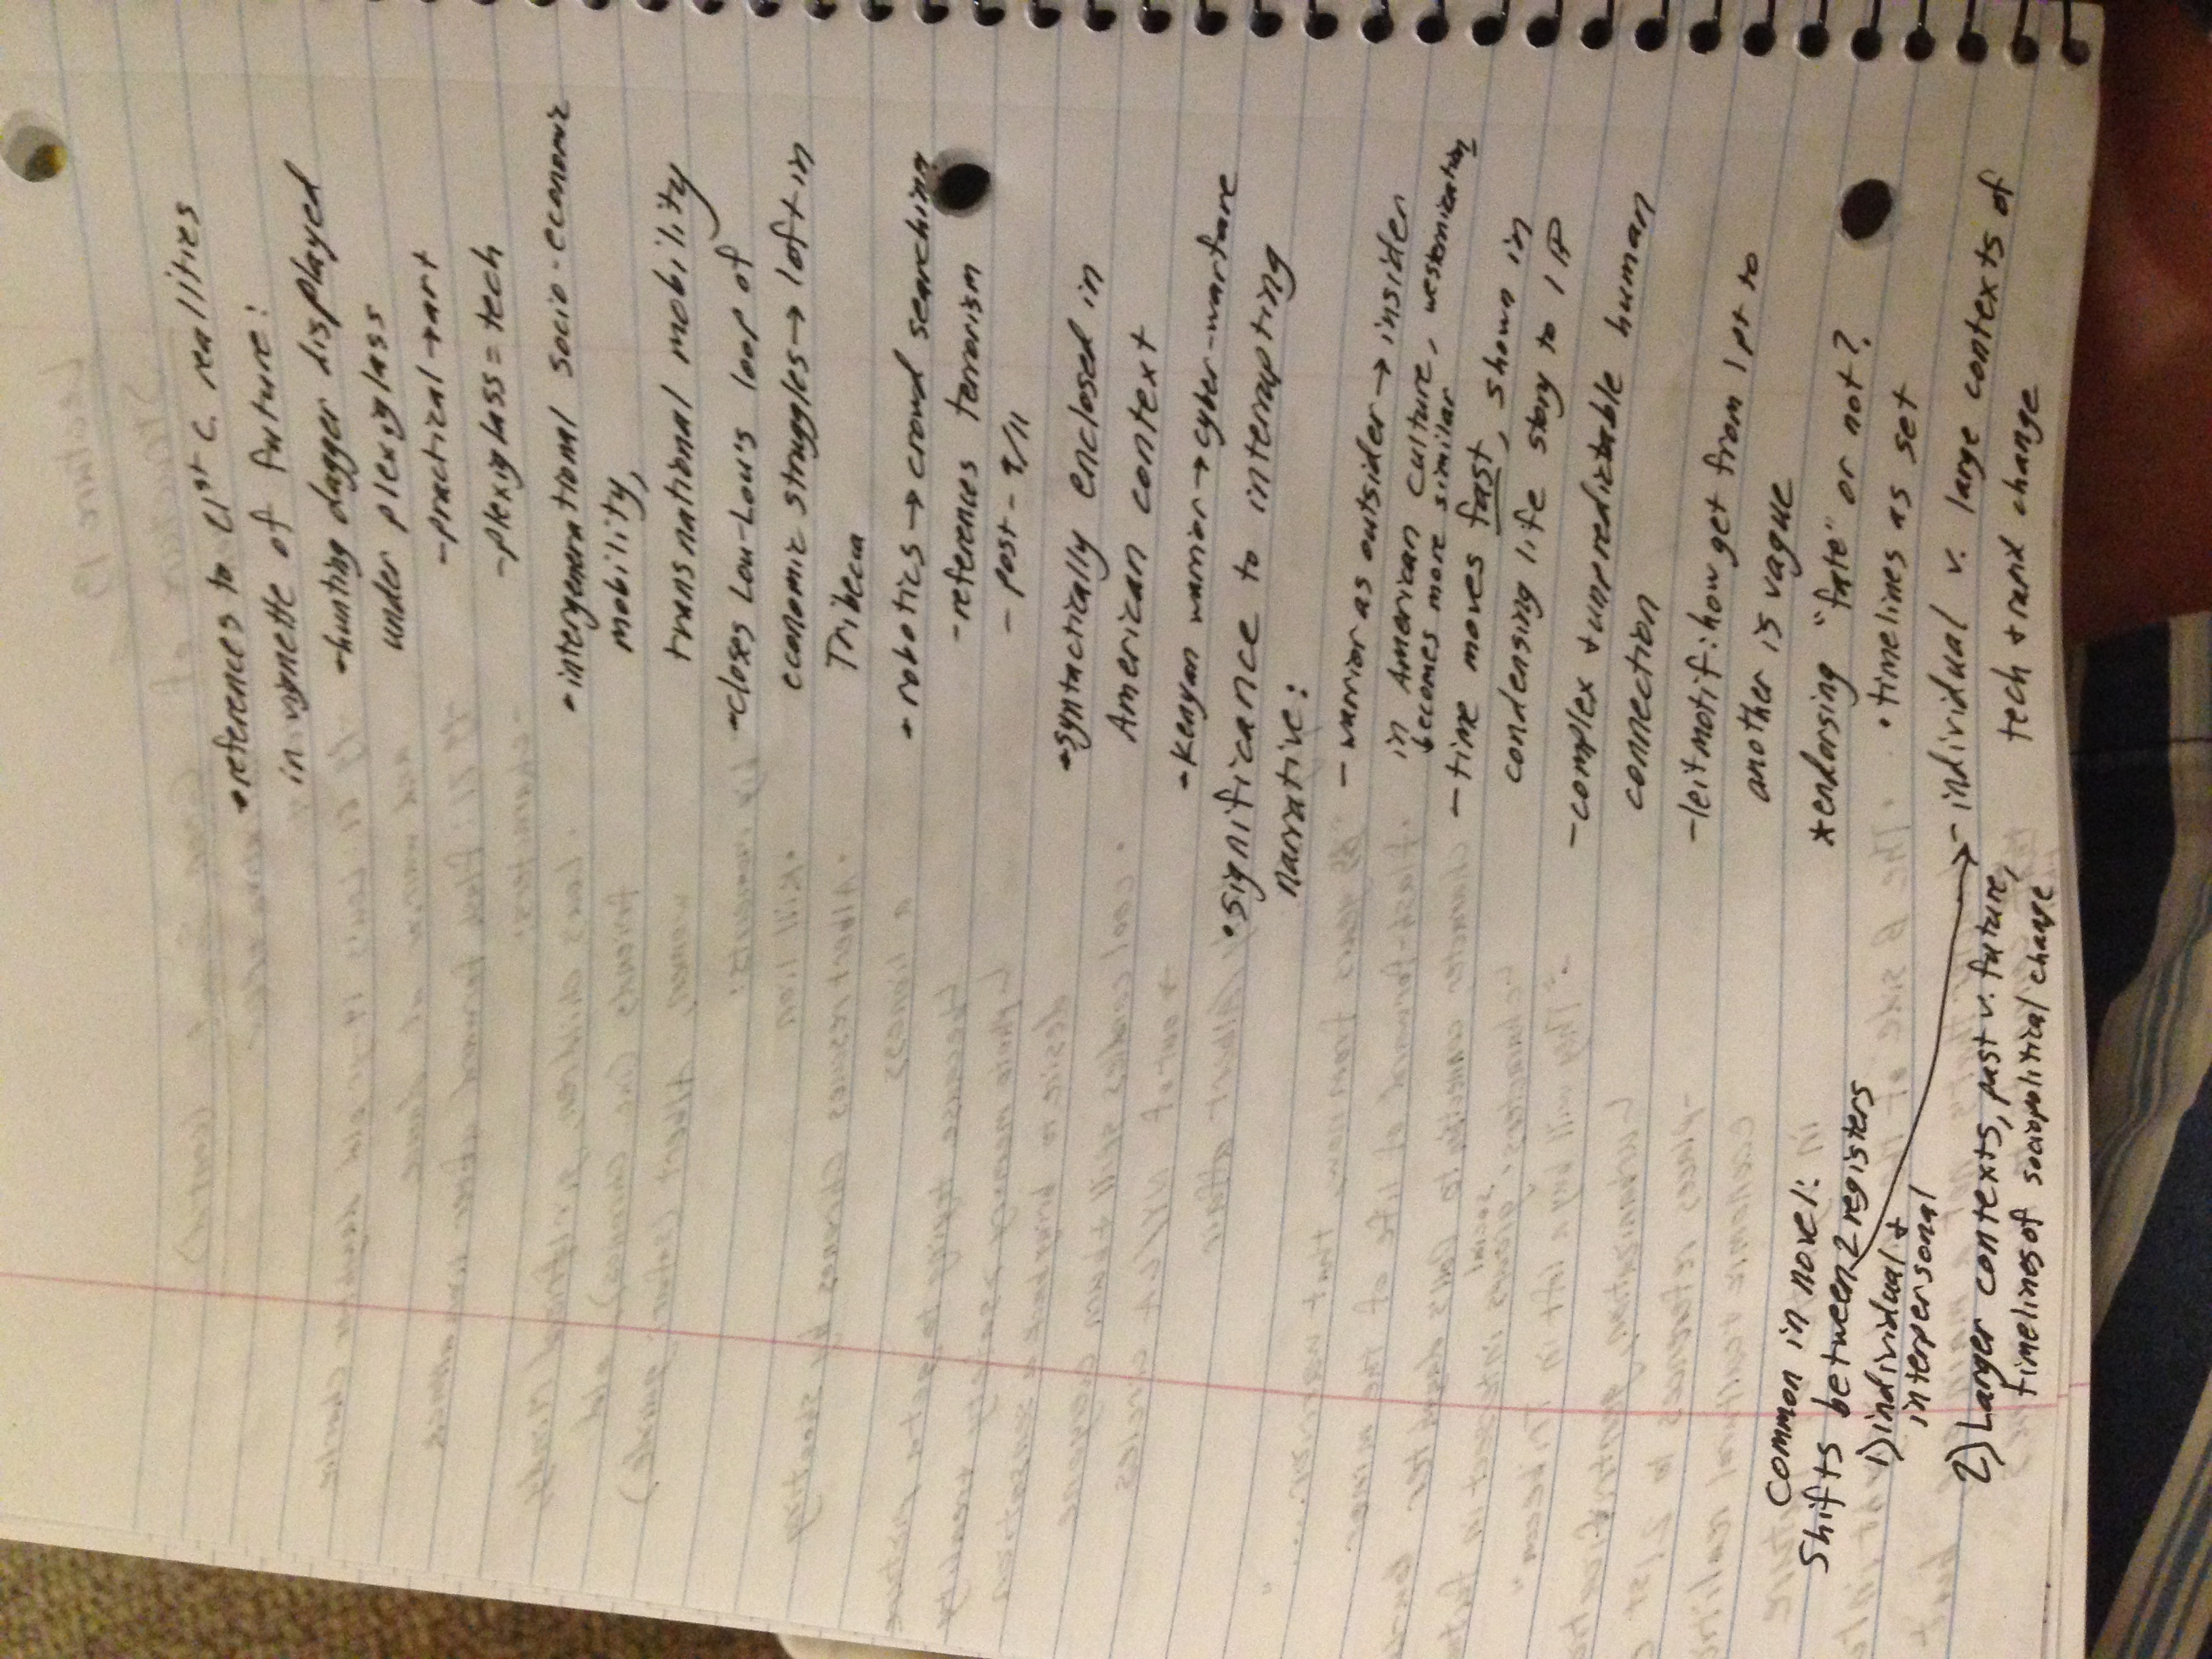 •references to 21st c. realities
in vignette of future:
-hunting dagger displayed
under plexiglass
-practical→art
-plexiglass=tech
•intergenerational socio-economic
mobility,
transnational mobility
-closes Lou-Lou's loop of
economic struggles→loft in
Tribeca
•robotics→crowd searching
-references terrorism
- post-9/11
•syntactically enclosed in
American context
•Kenyan warrior→cyber-warfare
•significance to interrupting
narrative:
- warrior as outsider→insider
in American culture, westernization
becomes more similar
-time moves fast, shown in
condensing life story to 1 P
-complex + unpredictable human
connection
-leitmotif: how get from 1 pt to
another is vague
*endorsing "fate" or not?
•timelines as set
- individual v. large contexts of
tech + rand change
Common in novel:
Shifts between 2 registers
1) individual +
interpersonal
2) Larger contexts, past v. future,
timelines of sociopolitical change